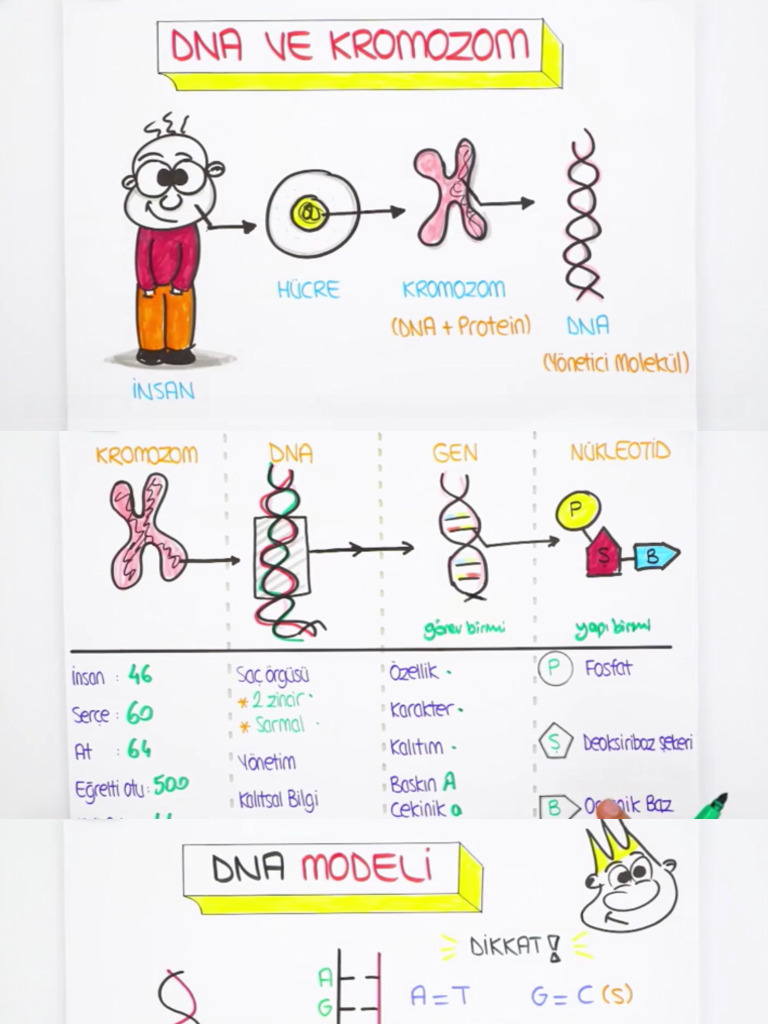 DNA VE KROMOZOM
HÜCRE
KROMOZOM
(DNA + Protein)
DNA
(Yönetici Molekül)
İNSAN
KROMOZOM
DNA
GEN
NÜKLEOTİD
P
Ş
B
görev birimi
yapı birimi
insan : 46
Serçe : 60
At : 64
Eğrelti otu : 500
Saç örgüsü
* 2 zincir
* Sarmal
Yönetim
Kalıtsal Bilgi
Özellik
Karakter
Kalıtım
Baskın A
Çekinik a
P Fosfat
Ş Deoksiriboz şekeri
B Baz
DNA MODELİ
DİKKAT!
A
G
A = T G = C (S)